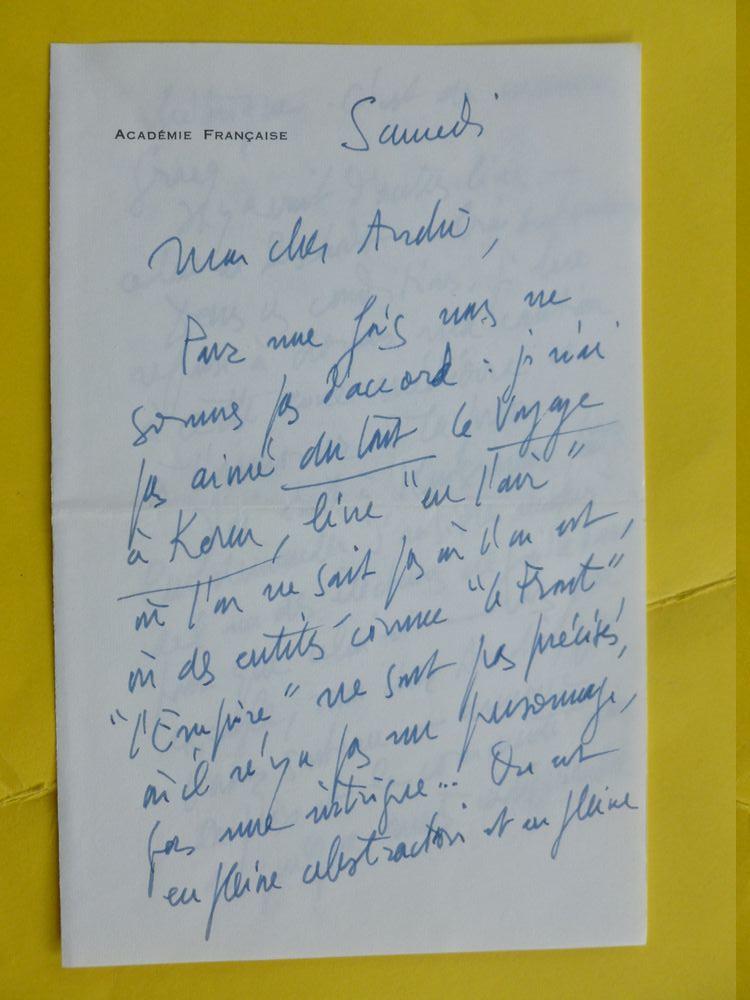 ACADÉMIE FRANÇAISE
Samedi
Mon cher André,
Pour une fois nous ne
sommes pas d'accord : je n'ai
pas aimé du tout le Voyage
à Keren, livre "en l'air"
où l'on ne sait pas où l'on est,
où des entités comme "le Front",
"l'Empire" ne sont pas précisés,
où il n'y a pas un personnage,
pas une intrigue... On est
en pleine abstraction et en pleine